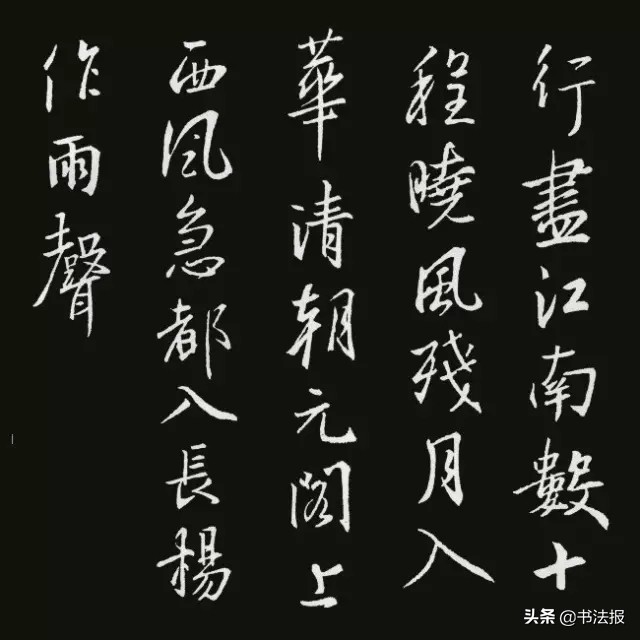 行盡江南數十
程曉風殘月入
華清朝元閣上
西风急都入長楊
作雨聲
头条 @书法报